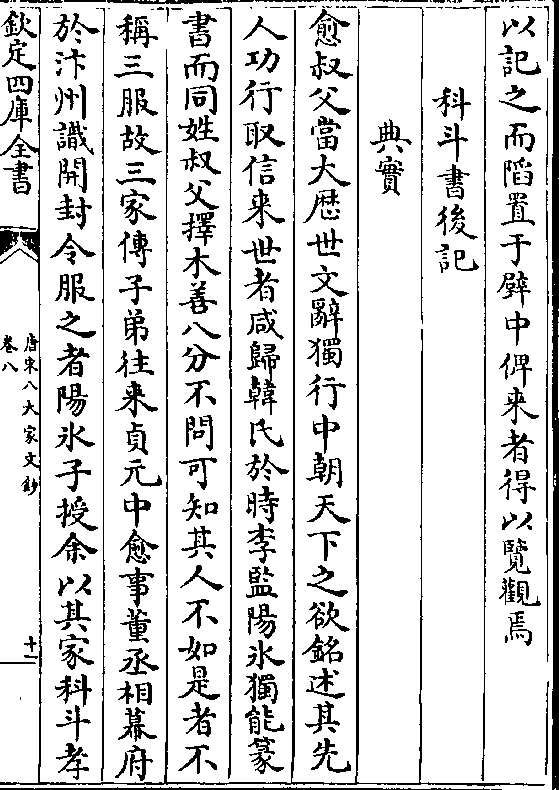 以記之而陷置于壁中俾来者得以覽觀焉
科斗書後記
典實
愈叔父當大厯世文辭獨行中朝天下之欲銘述其先
人功行取信来世者咸歸韓氏於時李監陽氷獨能篆
書而同姓叔父擇木善八分不問可知其人不如是者不
稱三服故三家傳子弟往来貞元中愈事董丞相幕府
於汴州識開封令服之者陽氷子授余以其家科斗孝
欽定四庫全書
唐宋八大家文鈔
卷八
十一